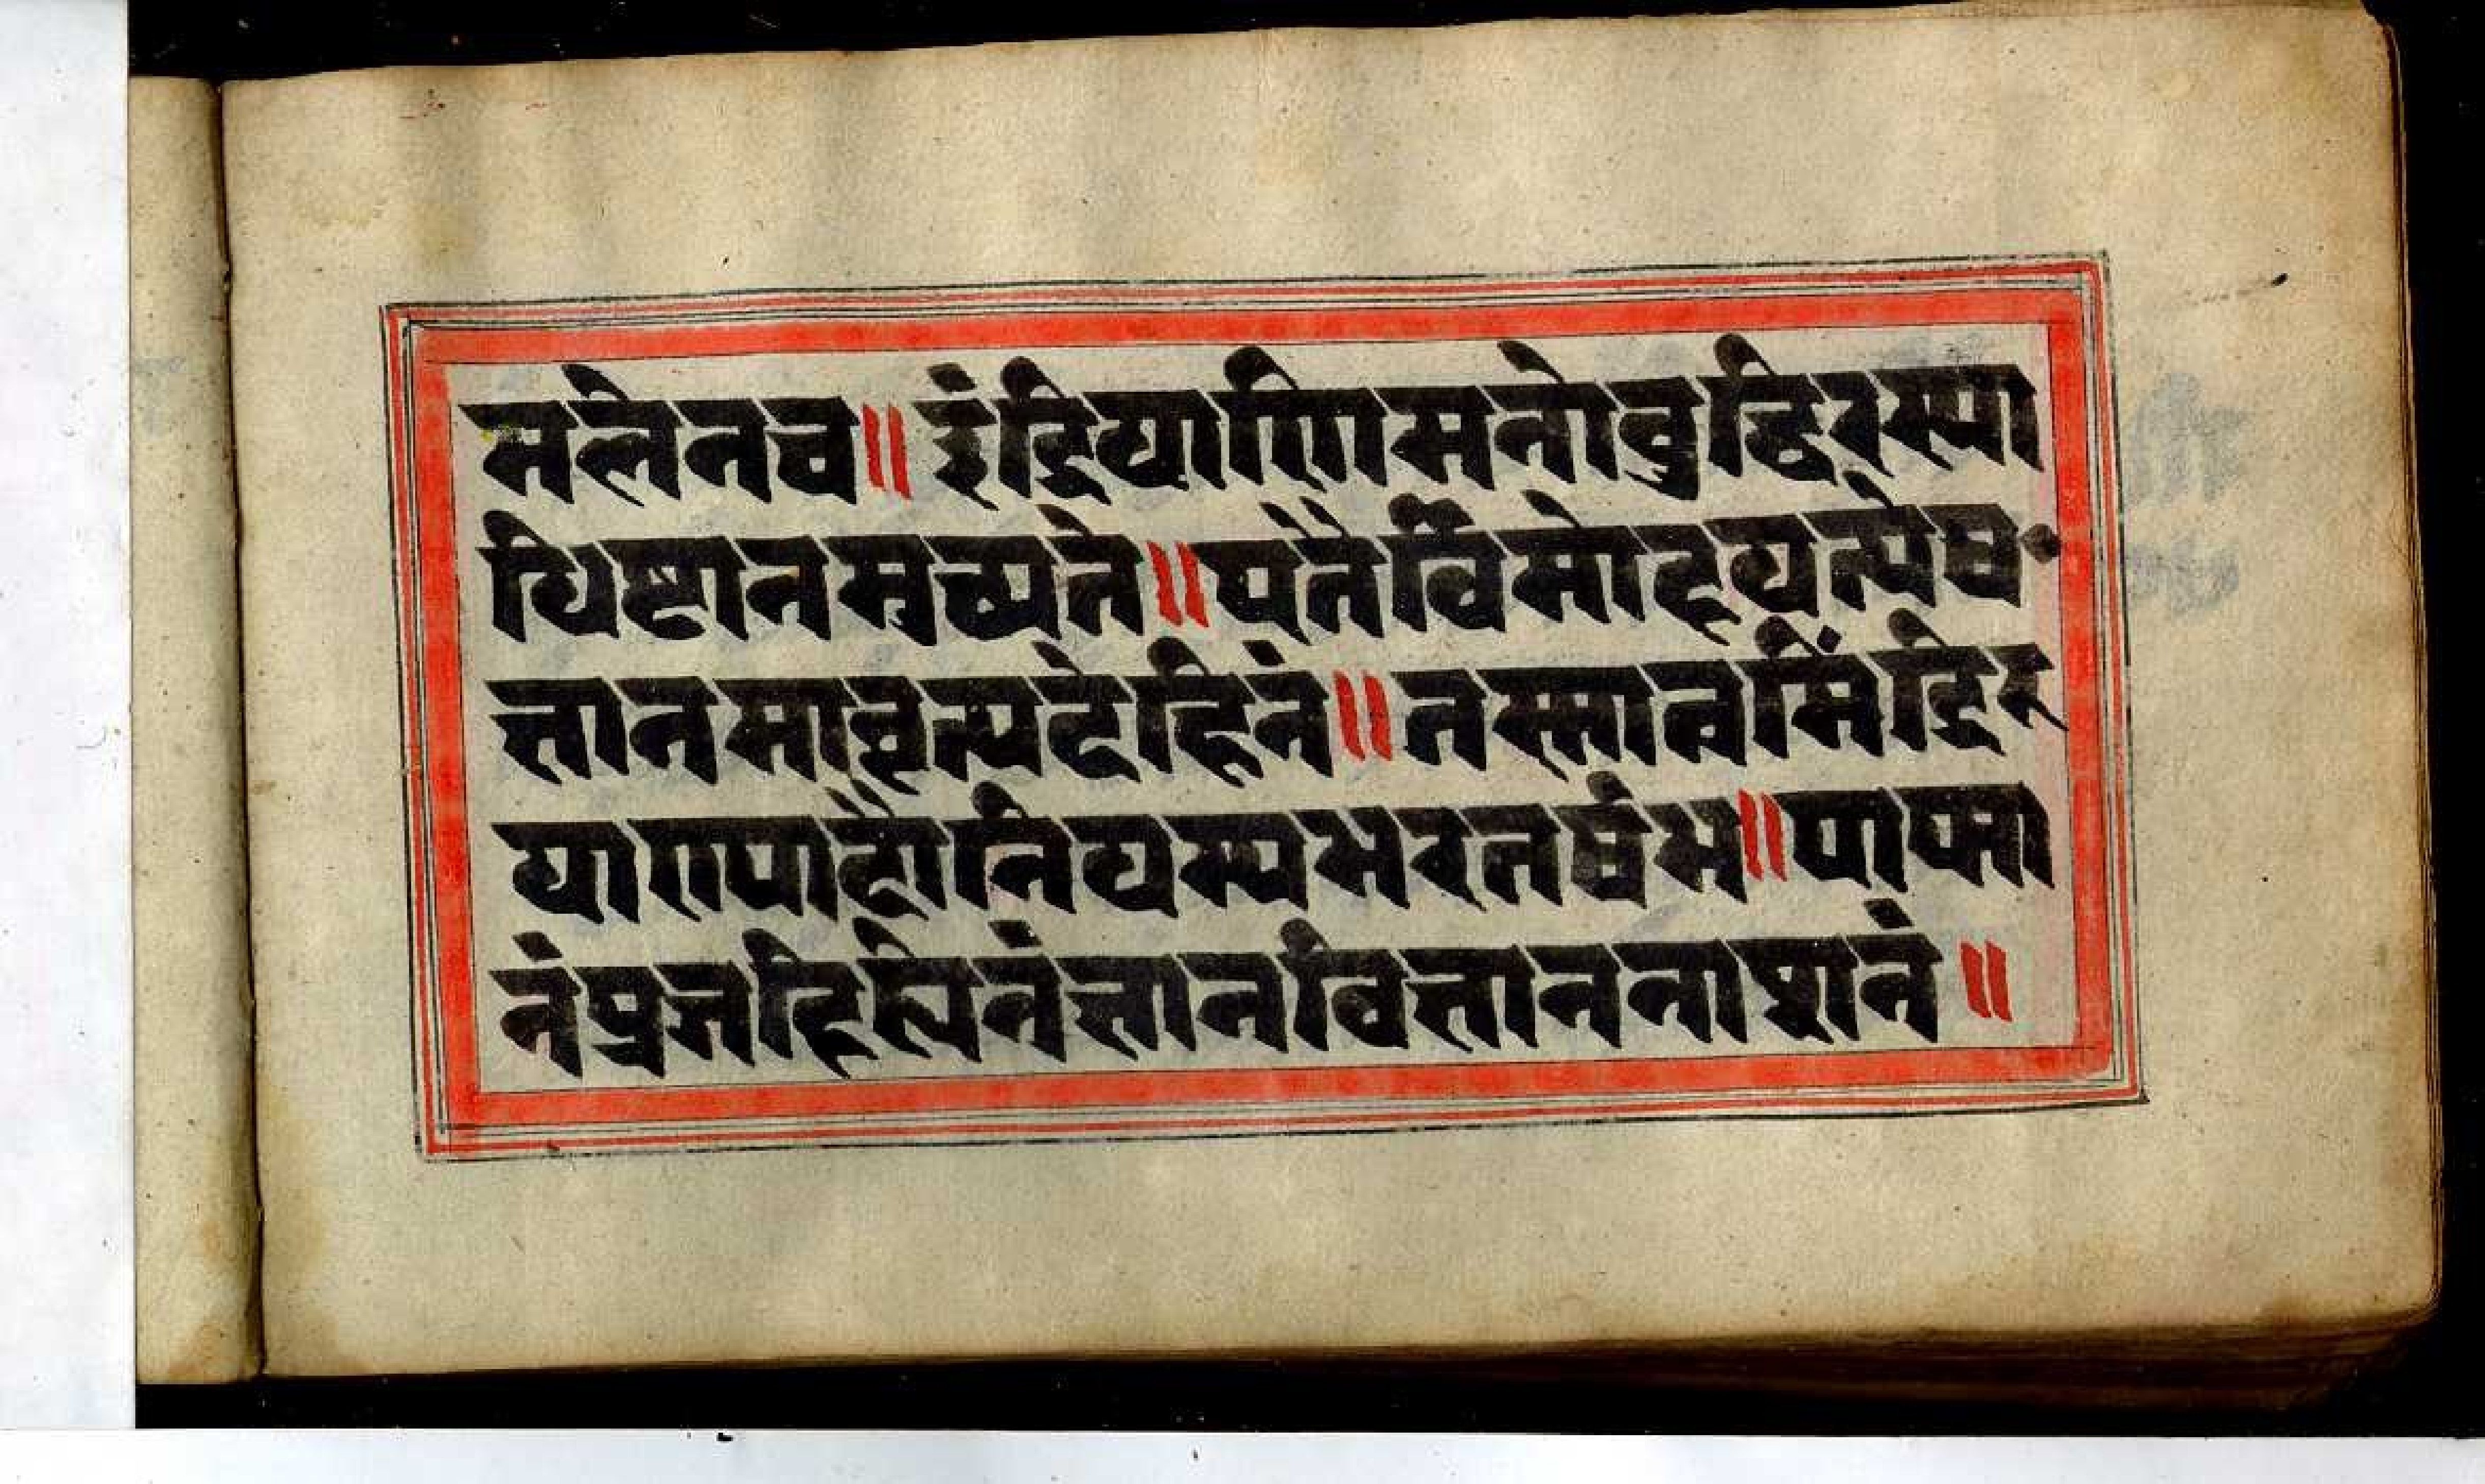 मलेनच॥इंद्रियाणिमनोबुद्धिरस्या
धिष्टानमुच्यते॥एतैर्विमोहयत्येष
ज्ञानमावृत्यदेहिनं॥तस्मात्वमिंद्रि
याण्यादौनियम्यभरतर्षभ॥पाप्मा
नंप्रजहिह्येनंज्ञानविज्ञाननाशनं॥